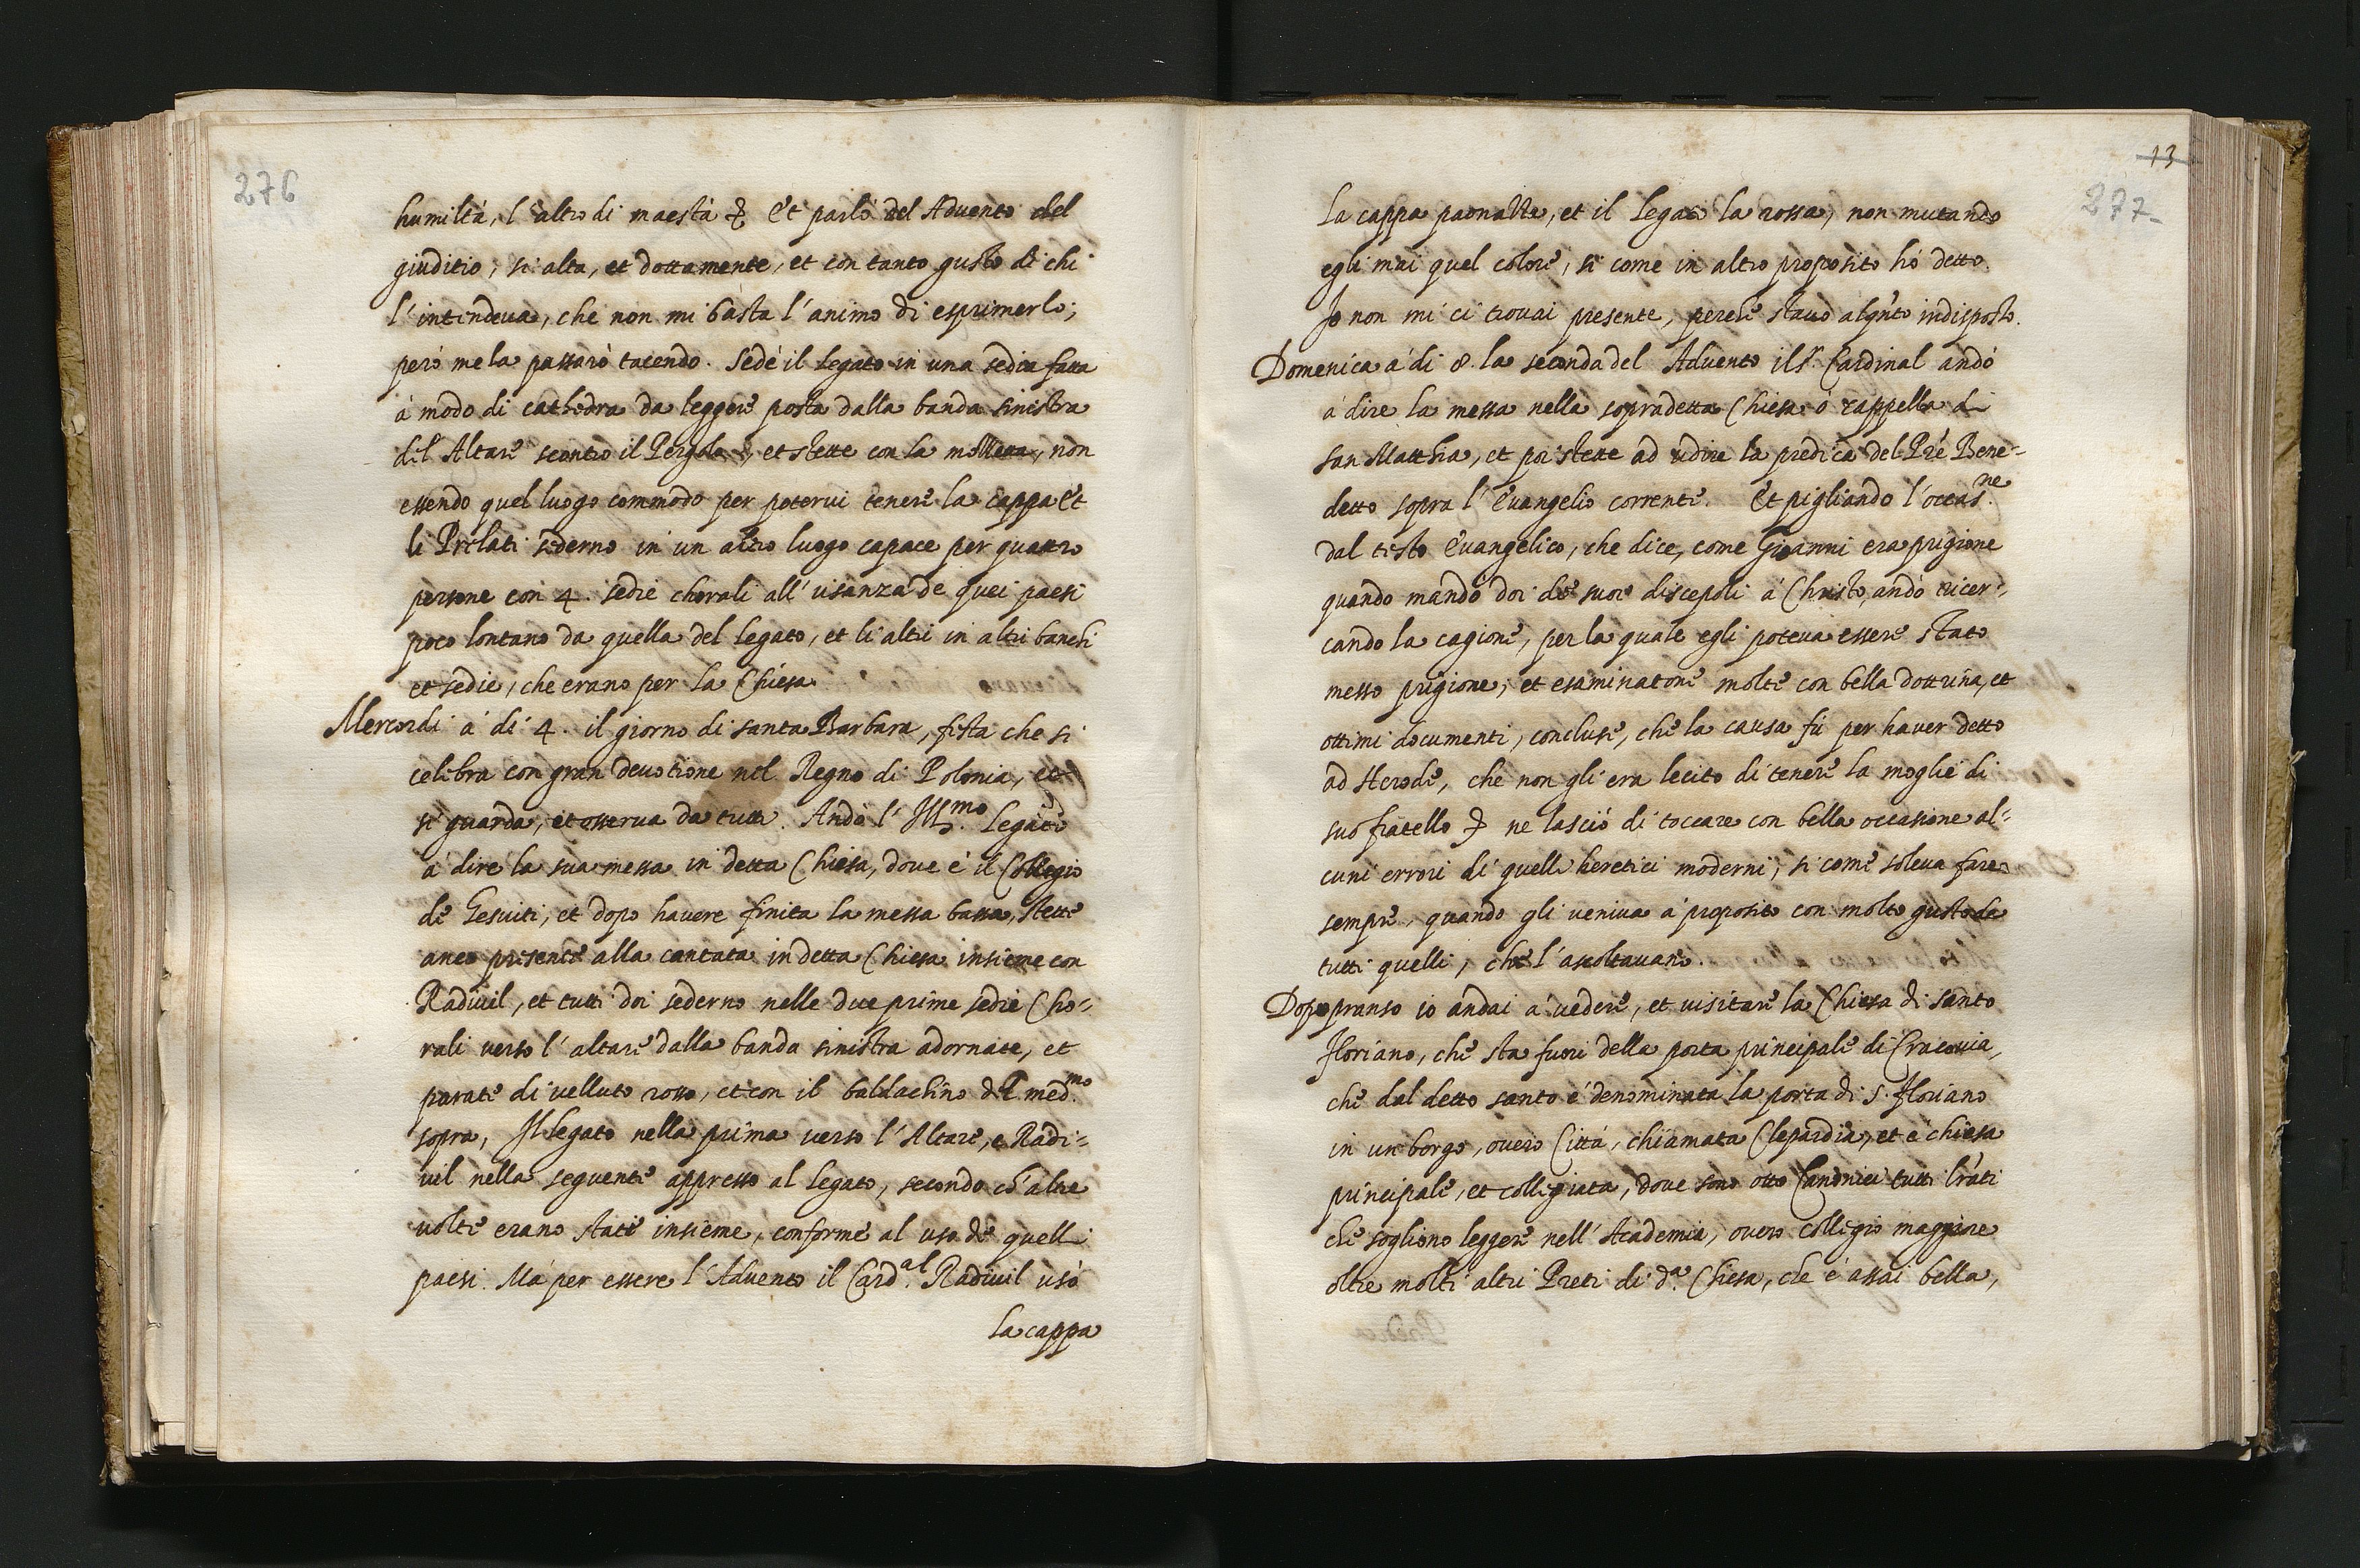 276
humiltà, l'altro di maestà &. Et parlò del Advento del
giuditio, si alta, et dottamente, et con tanto gusto di chi
l'intendeua, che non mi basta l'animo di esprimerlo;
però me la passarò tacendo. Sedè il Legato in una sedia fatta
à modo di cathedra da leggere posta dalla banda sinistra
del Altare scontro il Pergolo, et stette con la mozzetta, non
essendo quel luogo commodo per poterui tenere la cappa Et
li Prelati sederno in un altro luogo capace per quattro
persone con 4. sedie chorali all'usanza de quei paesi
poco lontano da quella del Legato, et li altri in altri banchi
et sedie, che erano per la Chiesa
Mercordi à di 4. il giorno di santa Barbara, festa che si
celebra con gran deuotione nel Regno di Polonia, et
si guarda, et osserua da tutti. Andò l'Ill.mo Legato
à dire la sua messa in detta Chiesa, dove è il Collegio
de Gesuiti, et dopo havere finita la messa bassa, stette
anco presente alla cantata in detta Chiesa insieme con
Radiuil, et tutti doi sederno nelle due prime sedie Cho=
rali verso l'altare dalla banda sinistra adornate, et
parate di velluto rosso, et con il baldachino del med.mo
sopra, Il Legato nella prima verso l'Altare, e Radi=
uil nella seguente appresso al Legato, secondo ch'altre
volte erano stati insieme, conforme al uso de quelli
paesi. Mà per essere l'Advento il Card.al Radiuil usò
La cappa
13
277
La cappa paonazza, et il Legato la rossa, non mutando
egli mai quel colore, si come in altro proposito hò detto.
Io non mi ci trouai presente, perche stauo alqnto indisposto.
Domenica à di 8. la seconda del Advento il S.r Cardinal andò
à dire la messa nella sopradetta Chiesa ò cappella di
san Matthia, et poi stette ad udire la predica del Pre Bene=
detto sopra l'Euangelio corrente. Et pigliando l'occas.ne
dal testo Euangelico, che dice, come Giovanni era prigione
quando mandò doi de suoi discepoli à Christo, andò ricer=
cando la cagione, per la quale egli poteua essere stato
messo prigione, et esaminatone molte con bella dottrina, et
ottimi documenti, concluse, che la causa fù per haver detto
ad Herode, che non gli era lecito di tenere la moglie di
suo fratello & ne lasciò di toccare con bella occasione al=
cuni errori di quelli heretici moderni, si come soleua fare
sempre, quando gli veniua à proposito con molto gusto de
tutti quelli, che l'ascoltauano.
Dopo pranso io andai à vedere, et uisitare la Chiesa di santo
Floriano, che sta fuori della porta principale di Cracouia,
che dal detto santo è denominata la porta di S. Floriano
in un borgo, overo Città, chiamata Clepardia, et è chiesa
principale, et collegiata, dove sono otto Canonici tutti lrati
che sogliono leggere nell'Academia, overo collegio maggiore
oltre molti altri Preti di d.a Chiesa, che è assai bella,